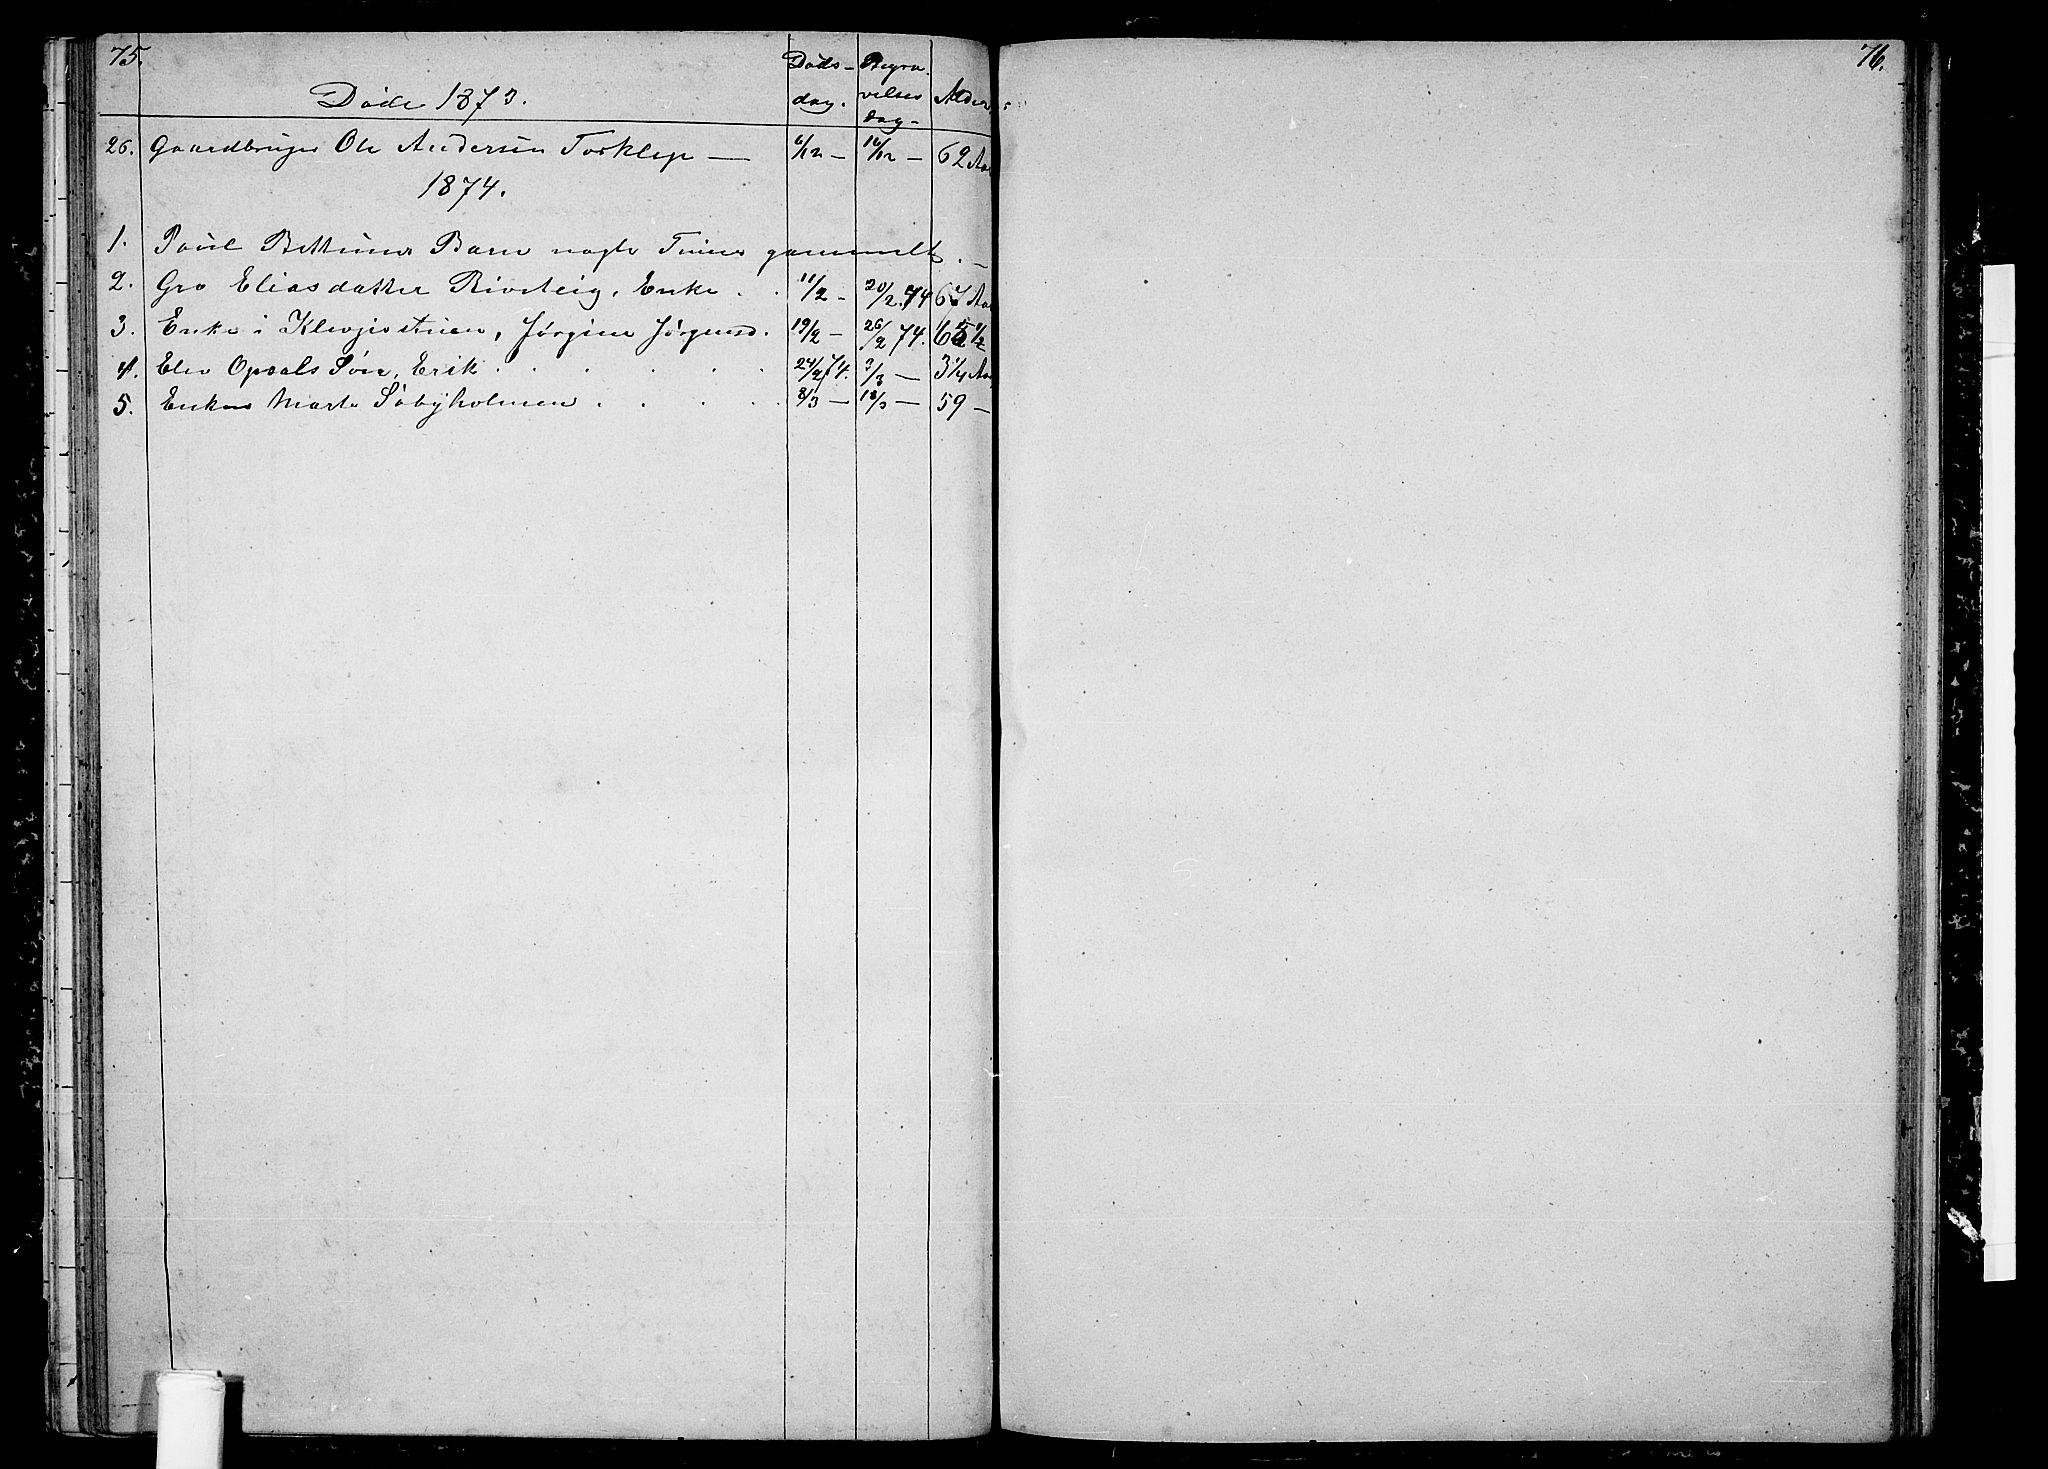 75.
76.
Døde 1873.
Døds-
dag.
Begra-
velses
dag-
Alder
26. Gaardbruger Ole Andersen Torklep — 6/12 — 16/12 — 62 Aar
1874.
1. Poul Barn nogle Timer gammelt. —
2. Gro Eliasdatter Enke . . 11/2 — 20/2 74 67 Aar
3. Enke i Jørgine Jørgensd. 19/2 — 26/2 74. 65 1/2
4. Elev Opsals Søn, Erik . . . . . 24/2 74. 3/3 — 3 1/4 Aar
5. Enken Marte Søbyholmen . . . . 8/3 — 18/3 — 59 —